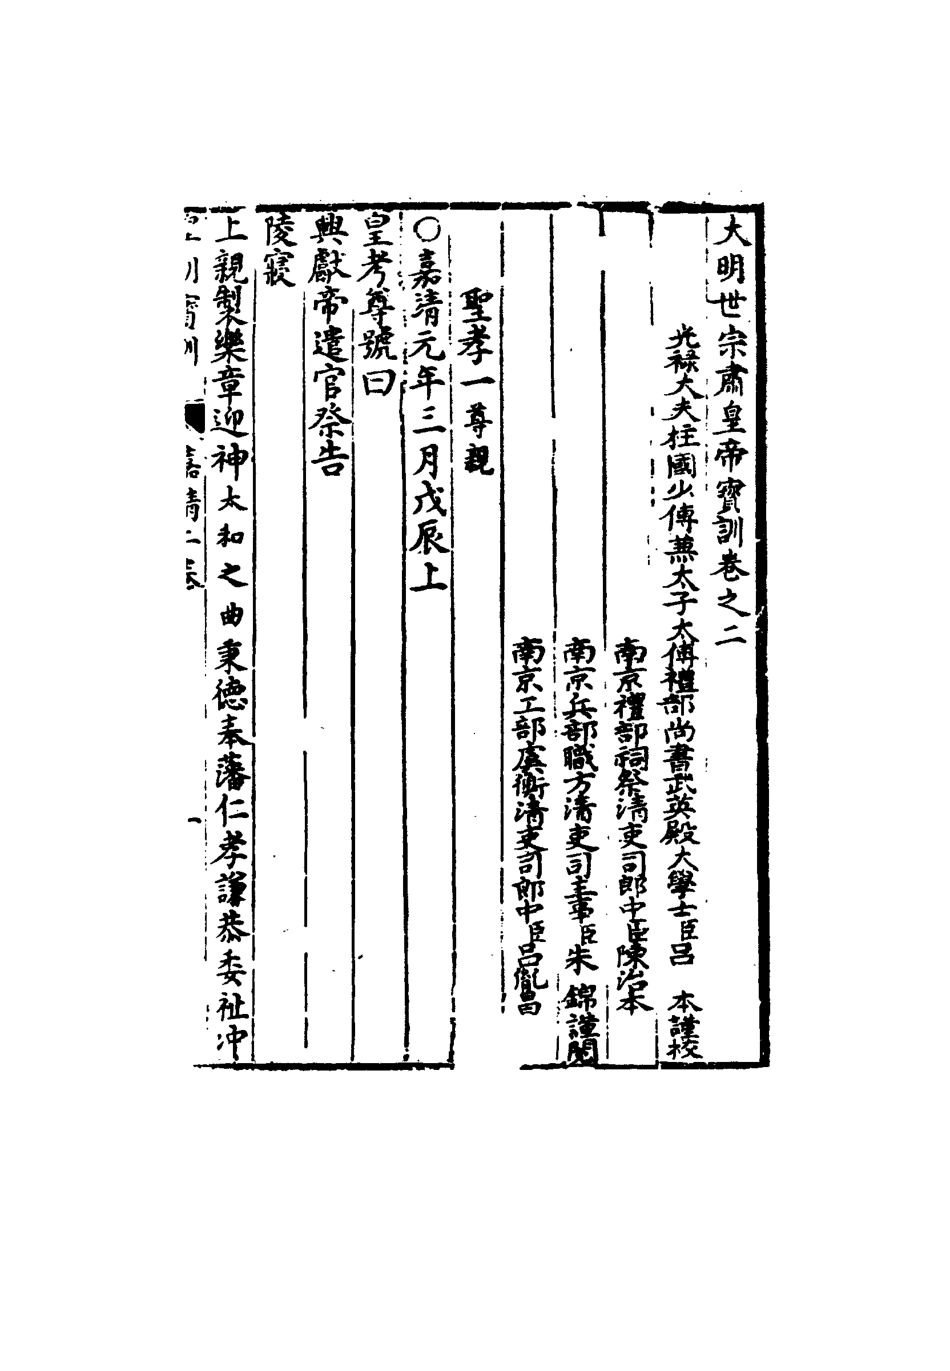 大明世宗肅皇帝寳訓卷之二
光祿大夫柱國少傅兼太子太傅禮部尚書武英殿大學士臣呂　本謹校
南京禮部祠祭清吏司郎中臣陳治本
南京兵部職方清吏司主事臣朱　錦謹閱
南京工部虞衡清吏司郎中臣呂胤昌
聖孝一尊親
〇嘉靖元年三月戊辰上
皇考尊號曰
興獻帝遣官祭告
陵寢
上親製樂章迎神太和之曲秉德奉藩仁孝謙恭委祉冲
皇明寳訓　嘉靖二卷　一